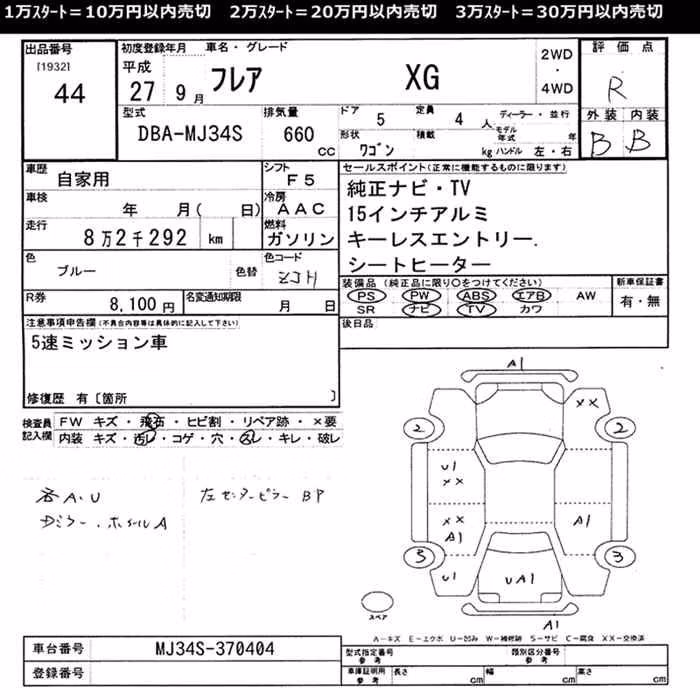 1万ｽﾀｰﾄ＝10万円以内売切　2万ｽﾀｰﾄ＝20万円以内売切　3万ｽﾀｰﾄ＝30万円以内売切
出品番号
[1932]
44
初度登録年月　車名・グレード
平成
27　9月　フレア　XG
2WD
・
4WD
評価点
R
外装　内装
B　B
型式
DBA-MJ34S
排気量
660
cc
ドア　5　定員　4　人
ディーラー・並行
形状　ワゴン　積載　kg
モデル年式　年
ハンドル　左・右
車歴
自家用
シフト
F5
セールスポイント(正常に機能するものに限ります)
純正ナビ・TV
15インチアルミ
キーレスエントリー.
シートヒーター
車検
年　月(　日)
冷房
AAC
走行
8万2千292　km
燃料
ガソリン
色
ブルー　色替
色コード
ZJH
装備品 (純正品に限り○をつけてください)
PS　PW　ABS　エアB　AW
SR　ナビ　TV　カワ
新車保証書
有・無
R券
8,100円
名変通知期限
月　日
後日品
注意事項申告欄(不具合内容等は具体的に記入して下さい)
5速ミッション車
修復歴　有〔箇所　〕
検査員
記入欄
FW　キズ・飛石・ヒビ割・リペア跡・×要
内装　キズ・汚レ・コゲ・穴・スレ・キレ・破レ
各A.U
Dミラー.ホイールA
左センターピラー BP
A1
××
2　2
U1
××
××
A1
A1
3　3
U1
UA1
A1
スペア
A－キズ　E－エクボ　U－凹み　W－補修跡　S－サビ　C－腐食　XX－交換済
車台番号
MJ34S-370404
登録番号
型式指定番号
参考
類別区分番号
参考
車庫証明用
参考
長さ　cm　幅　cm　高さ　cm